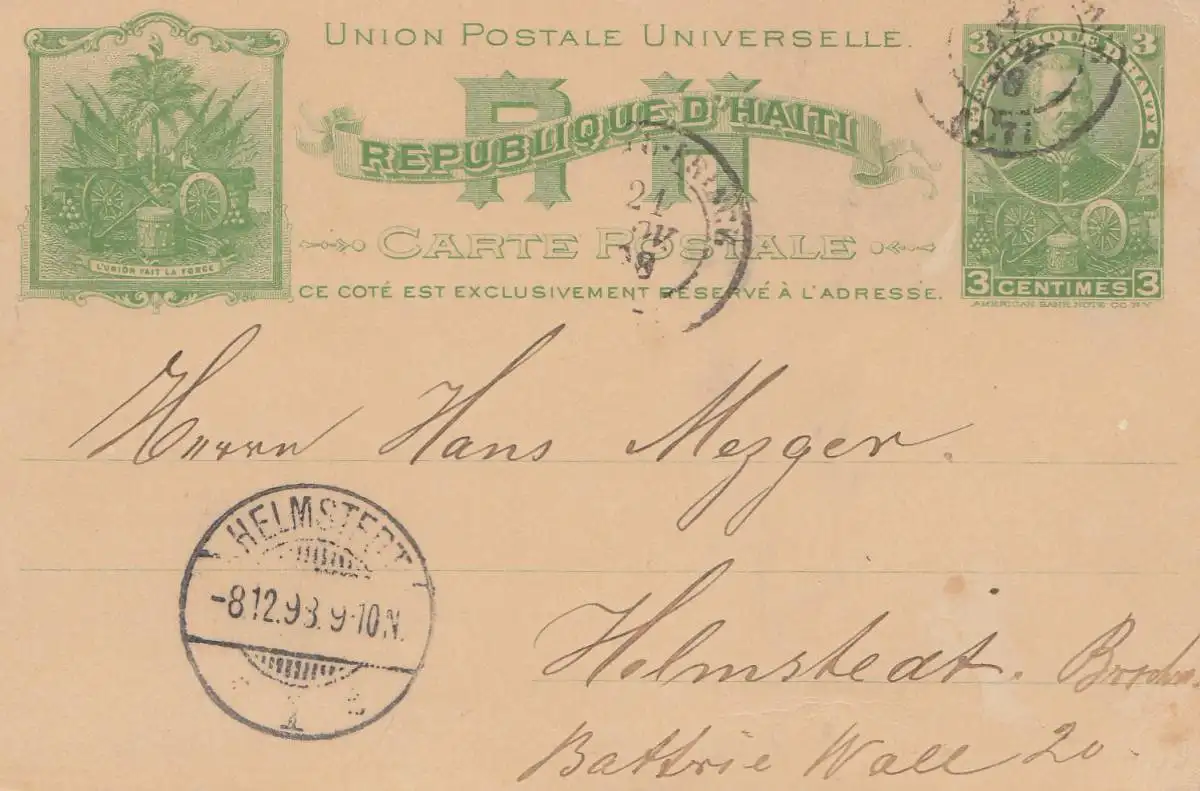 UNION POSTALE UNIVERSELLE.
RH
REPUBLIQUE D'HAITI
CARTE POSTALE
CE COTÉ EST EXCLUSIVEMENT RÉSERVÉ À L'ADRESSE.
L'UNION FAIT LA FORCE
3 3
3 CENTIMES 3
AMERICAN BANK NOTE CO. N.Y.
21
Herrn Hans Mezger.
HELMSTEDT
-8.12.98. 9-10.N.
1
Helmstedt.
Battrie Wall 20